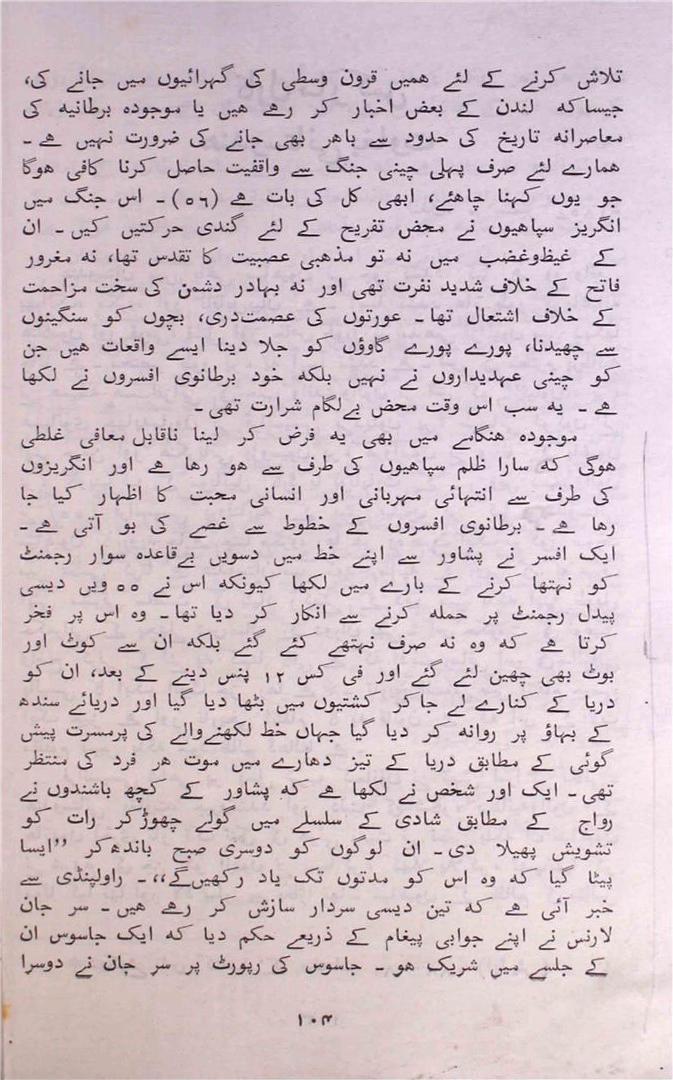 تلاش کرنے کے لئے ہمیں قرون وسطی کی گہرائیوں میں جانے کی،
جیساکہ لندن کے بعض اخبار کر رہے ہیں یا موجودہ برطانیہ کی
معاصرانہ تاریخ کی حدود سے باہر بھی جانے کی ضرورت نہیں ہے۔
ہمارے لئے صرف پہلی چینی جنگ سے واقفیت حاصل کرنا کافی ہوگا
جو یوں کہنا چاہئے، ابھی کل کی بات ہے (۵۶)۔ اس جنگ میں
انگریز سپاہیوں نے محض تفریح کے لئے گندی حرکتیں کیں۔ ان
کے غیظ‌وغضب میں نہ تو مذہبی عصبیت کا تقدس تھا، نہ مغرور
فاتح کے خلاف شدید نفرت تھی اور نہ بہادر دشمن کی سخت مزاحمت
کے خلاف اشتعال تھا۔ عورتوں کی عصمت‌دری، بچوں کو سنگینوں
سے چھیدنا، پورے پورے گاوؤں کو جلا دینا ایسے واقعات ہیں جن
کو چینی عہدیداروں نے نہیں بلکہ خود برطانوی افسروں نے لکھا
ہے۔ یہ سب اس وقت محض بےلگام شرارت تھی۔
موجودہ ہنگامے میں بھی یہ فرض کر لینا ناقابل معافی غلطی
ہوگی کہ سارا ظلم سپاہیوں کی طرف سے ہو رہا ہے اور انگریزوں
کی طرف سے انتہائی مہربانی اور انسانی محبت کا اظہار کیا جا
رہا ہے۔ برطانوی افسروں کے خطوط سے غصے کی بو آتی ہے۔
ایک افسر نے پشاور سے اپنے خط میں دسویں بےقاعدہ سوار رجمنٹ
کو نہتھا کرنے کے بارے میں لکھا کیونکہ اس نے ۵۵ ویں دیسی
پیدل رجمنٹ پر حملہ کرنے سے انکار کر دیا تھا۔ وہ اس پر فخر
کرتا ہے کہ وہ نہ صرف نہتھے کئے گئے بلکہ ان سے کوٹ اور
بوٹ بھی چھین لئے گئے اور فی کس ۱۲ پنس دینے کے بعد، ان کو
دریا کے کنارے لے جاکر کشتیوں میں بٹھا دیا گیا اور دریائے سندھ
کے بہاؤ پر روانہ کر دیا گیا جہاں خط لکھنےوالے کی پرمسرت پیش
گوئی کے مطابق دریا کے تیز دھارے میں موت ہر فرد کی منتظر
تھی۔ ایک اور شخص نے لکھا ہے کہ پشاور کے کچھ باشندوں نے
رواج کے مطابق شادی کے سلسلے میں گولے چھوڑکر رات کو
تشویش پھیلا دی۔ ان لوگوں کو دوسری صبح باندھ‌کر ”ایسا
پیٹا گیا کہ وہ اس کو مدتوں تک یاد رکھیں‌گے،،۔ راولپنڈی سے
خبر آئی ہے کہ تین دیسی سردار سازش کر رہے ہیں۔ سر جان
لارنس نے اپنے جوابی پیغام کے ذریعے حکم دیا کہ ایک جاسوس ان
کے جلسے میں شریک ہو۔ جاسوس کی رپورٹ پر سر جان نے دوسرا
۱۰۴